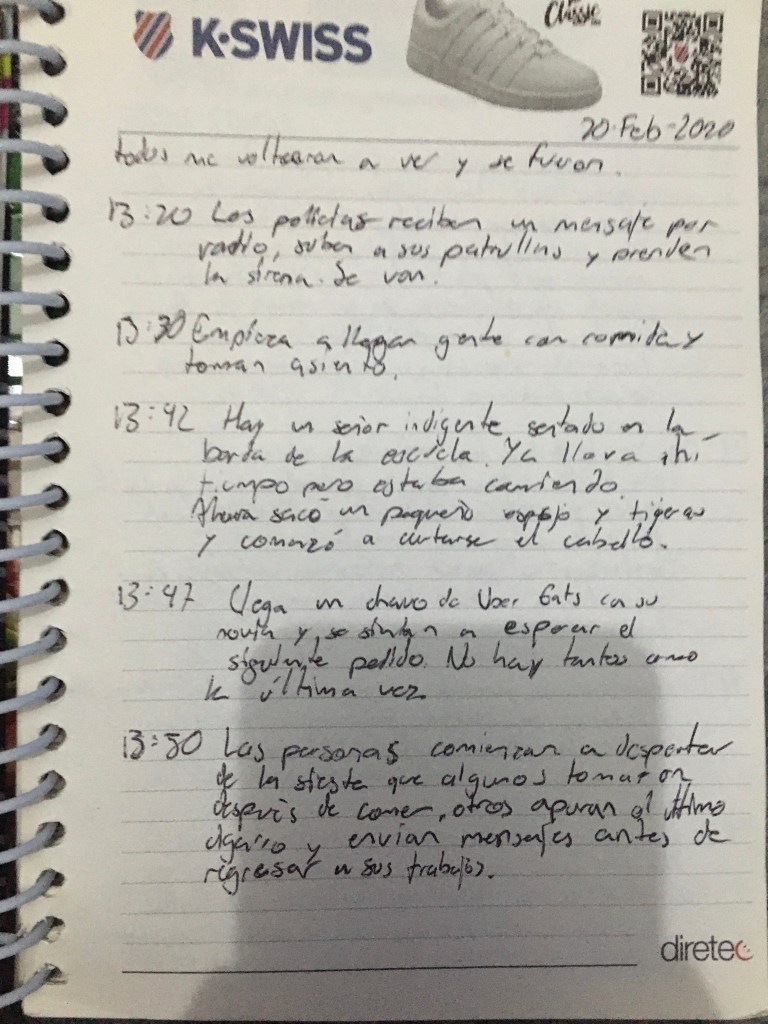 K·SWISS
Classic
20-Feb-2020
todos me voltearon a ver y se fueron.
13:20 Los policias reciben un mensaje por
radio, suben a sus patrullas y prenden
la sirena. Se van.
13:30 Empieza a llegar gente con comida y
toman asiento.
13:42 Hay un señor indigente sentado en la
barda de la escuela. Ya lleva ahí
tiempo pero estaba comiendo.
Ahora sacó un pequeño espejo y tijeras
y comenzó a cortarse el cabello.
13:47 Llega un chavo de Uber Eats con su
novia y se sientan a esperar el
siguiente pedido. No hay tantos como
la última vez.
13:50 Las personas comienzan a despertar
de la siesta que algunos tomaron
después de comer, otros apuran el último
cigarro y envían mensajes antes de
regresar a sus trabajos.
diretec